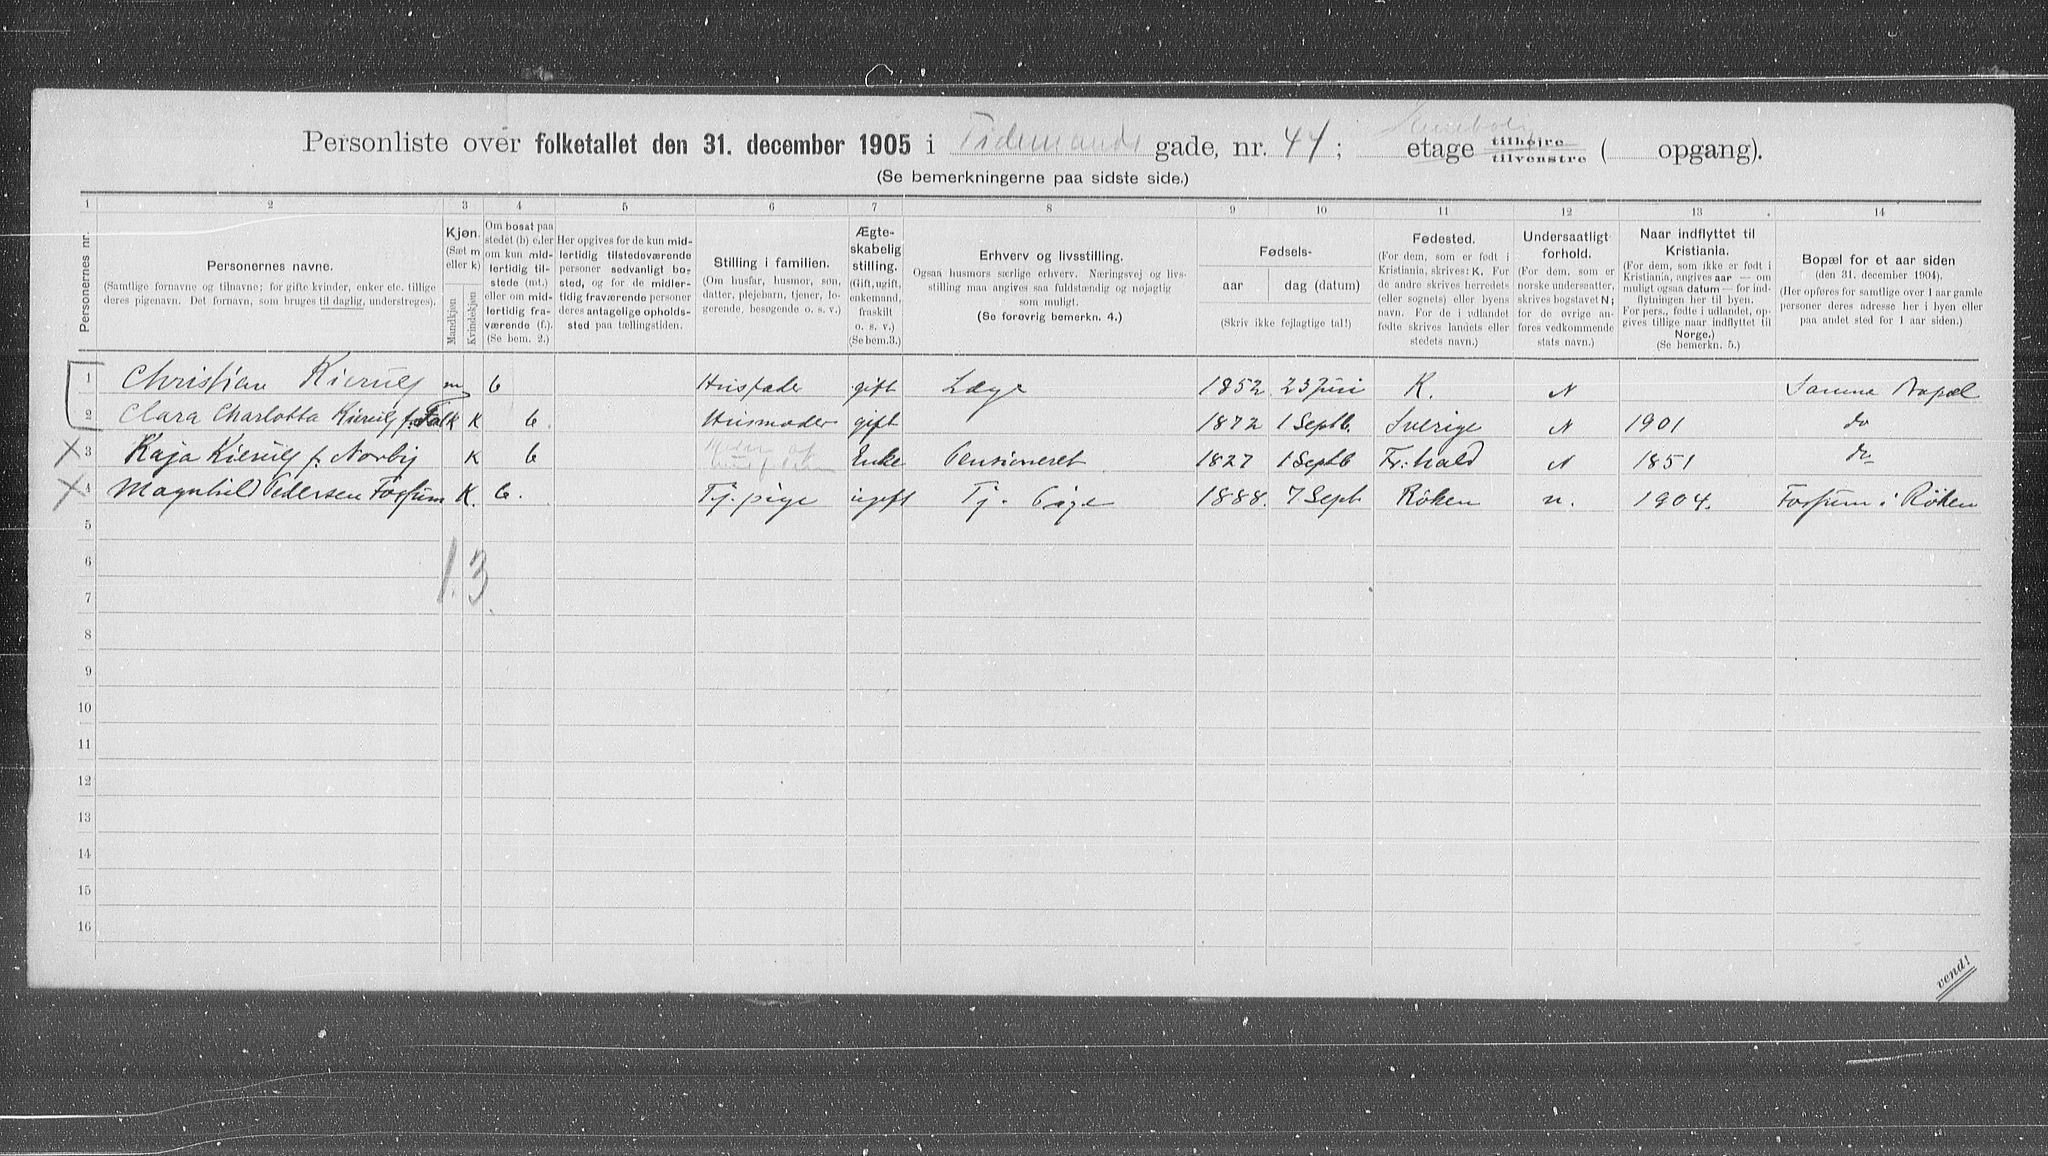 Personliste over folketallet den 31. december 1905 i Tidemands gade, nr. 44; etage tilhøjre tilvenstre ( opgang).
(Se bemerkningerne paa sidste side.)
1 2 3 4 5 6 7 8 9 10 11 12 13 14
Personernes nr.
Personernes navne.
(Samtlige fornavne og tilnavne; for gifte kvinder, enker etc. tillige
deres pigenavn. Det fornavn, som bruges til daglig, understreges).
Kjøn.
(Sæt m
eller k)
Mandkjøn
Kvindekjøn
Om bosat paa
stedet (b) eller
om kun mid-
lertidig til-
stede (mt.)
eller om mid-
lertidig fra-
værende (f.).
(Se bem. 2.)
Her opgives for de kun mid-
lertidig tilstedeværende
personer sedvanligt bo-
sted, og for de midler-
tidig fraværende personer
deres antagelige opholds-
sted paa tællingstiden.
Stilling i familien.
(Om husfar, husmor, søn,
datter, plejebarn, tjener, lo-
gerende, besøgende o. s. v.)
Ægte-
skabelig
stilling.
(Gift, ugift,
enkemand,
fraskilt
o. s. v.)
(Se bem.3.)
Erhverv og livsstilling.
Ogsaa husmors særlige erhverv. Næringsvej og livs-
stilling maa angives saa fuldstændig og nøjagtig
som muligt.
(Se forøvrig bemerkn. 4.)
Fødsels-
aar
dag (datum)
(Skriv ikke fejlagtige tal!)
Fødested.
(For dem, som er født i
Kristiania, skrives: K. For
de andre skrives herredets
(eller sognets) eller byens
navn. For de i udlandet
fødte skrives landets eller
stedets navn.)
Undersaatligt
forhold.
(For dem, som er
norske undersaatter,
skrives bogstavet N;
for de øvrige an-
føres vedkommende
stats navn.)
Naar indflyttet til
Kristiania.
(For dem, som ikke er født i
Kristiania, angives aar — om
muligt ogsaa datum — for ind-
flytningen her til byen.
For pers., fødte i udlandet, op-
gives tillige naar indflyttet til
Norge.)
(Se bemerkn. 5.)
Bopæl for et aar siden
(den 31. december 1904).
(Her opføres for samtlige over 1 aar gamle
personer deres adresse her i byen eller
paa andet sted for 1 aar siden.)
1 Christian Kierulf m b Husfader gift Læge 1852 23 Juni K. N Samme Bopæl
2 Clara Charlotta Kierulf f. Falk K b Husmoder gift 1872 1 Septb. Sverige N 1901 do
3 Kaja Kierulf f. Norby K b Enke Pensioneret 1827 1 Septb Fr:hald N 1851 do
4 Magnhild Pedersen Fossum K. b. Tj. pige ugift Tj. Pige 1888. 7 Sept. Röken n. 1904. Fossum i Röken
5
6
1. 3.
7
8
9
10
11
12
13
14
15
16
vend!